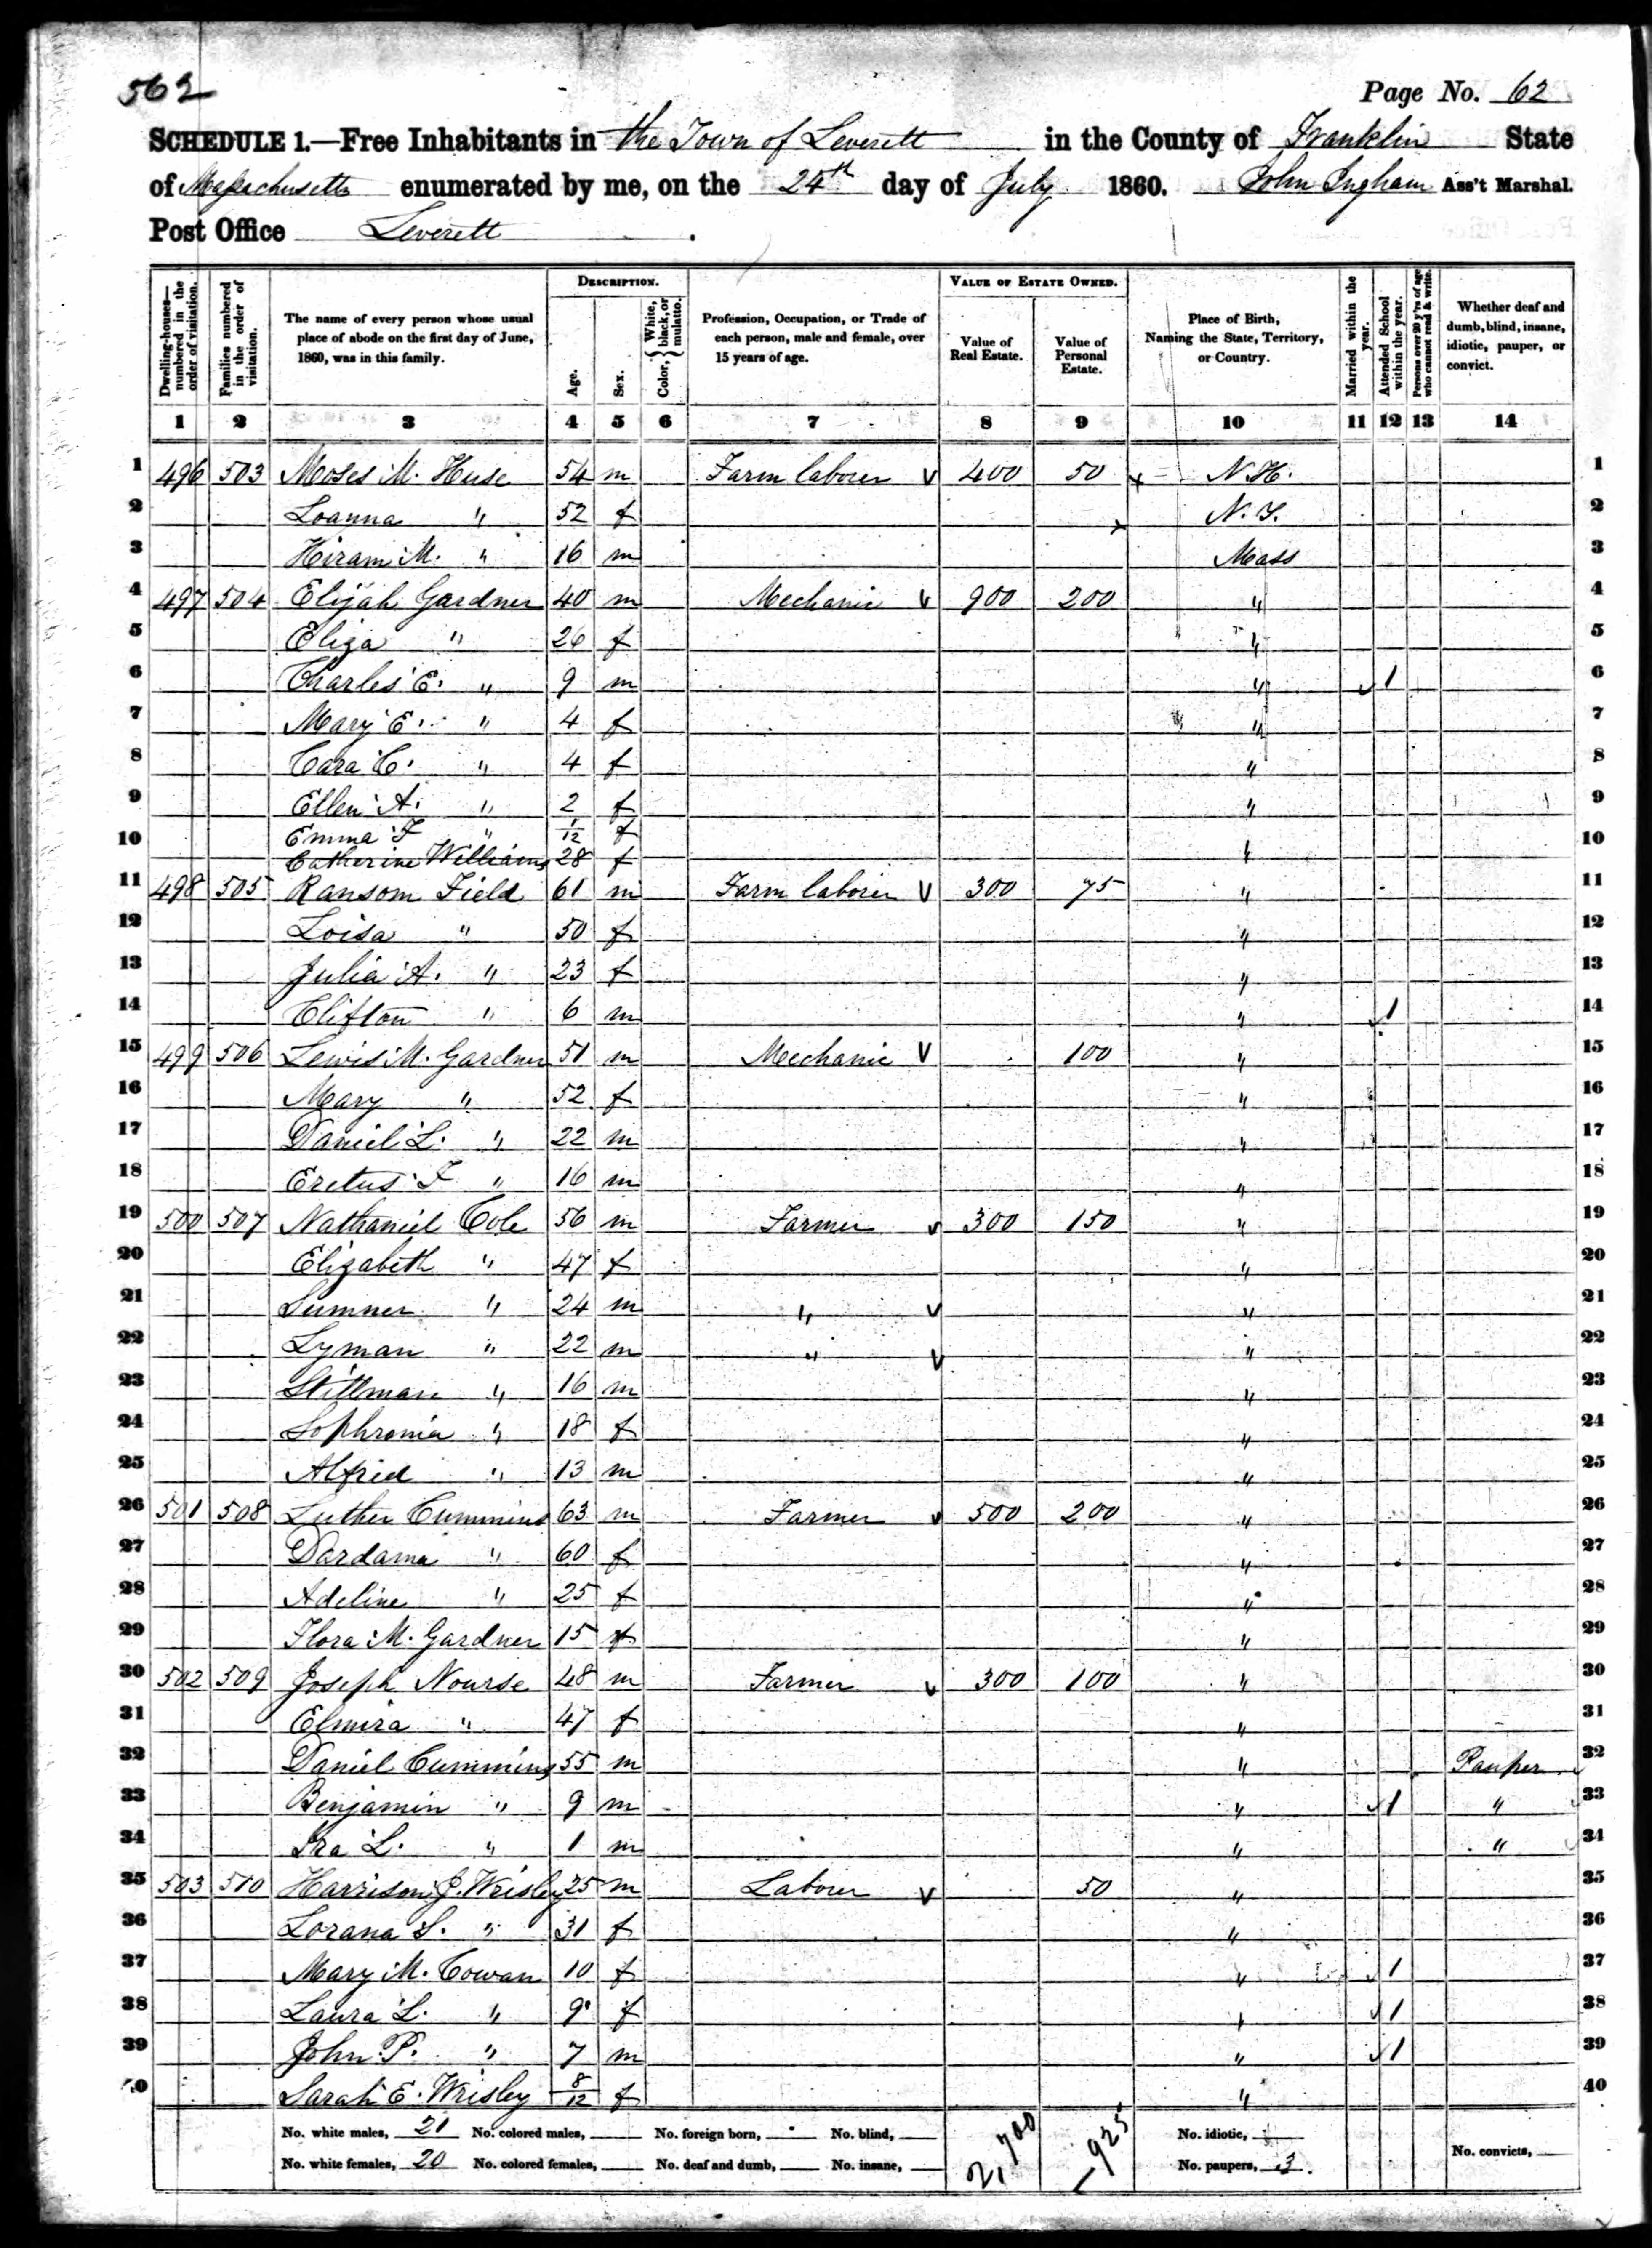 562
Page No. 62
SCHEDULE 1.—Free Inhabitants in the Town of Leverett in the County of Franklin State
of Massachusetts enumerated by me, on the 24th day of July 1860. John Ingham Ass't Marshal.
Post Office Leverett.
Dwelling-houses—numbered in the order of visitation.
Families numbered in the order of visitation.
The name of every person whose usual place of abode on the first day of June, 1860, was in this family.
DESCRIPTION.
Age.
Sex.
Color, { White, black, or mulatto.
Profession, Occupation, or Trade of each person, male and female, over 15 years of age.
VALUE OF ESTATE OWNED.
Value of Real Estate.
Value of Personal Estate.
Place of Birth, Naming the State, Territory, or Country.
Married within the year.
Attended School within the year.
Persons over 20 y'rs of age who cannot read & write.
Whether deaf and dumb, blind, insane, idiotic, pauper, or convict.
1 2 3 4 5 6 7 8 9 10 11 12 13 14
1 496 503 Moses M. Huse 54 m Farm laborer 400 50 N.H. 1
2 Loanna " 52 f N.Y. 2
3 Hiram M. " 16 m Mass 3
4 497 504 Elijah Gardner 40 m Mechanic 900 200 " 4
5 Eliza " 26 f " 5
6 Charles E. " 9 m " 1 6
7 Mary E. " 4 f " 7
8 Cara C. " 4 f " 8
9 Ellen A. " 2 f " 9
10 Emma F " 1/12 f 10
Catherine Williams 28 f "
11 498 505 Ransom Field 61 m Farm laborer 300 75 " 11
12 Loisa " 50 f " 12
13 Julia A. " 23 f " 13
14 Clifton " 6 m " 1 14
15 499 506 Lewis M. Gardner 51 m Mechanic 100 " 15
16 Mary " 52 f " 16
17 Daniel L. " 22 m " 17
18 Eretus F " 16 m " 18
19 500 507 Nathaniel Cole 56 m Farmer 300 150 " 19
20 Elizabeth " 47 f " 20
21 Sumner " 24 m " " 21
22 Lyman " 22 m " " 22
23 Stillman " 16 m " 23
24 Sophronia " 18 f " 24
25 Alfred " 13 m " 25
26 501 508 Luther Cummins 63 m Farmer 500 200 " 26
27 Dardama " 60 f " 27
28 Adeline " 25 f " 28
29 Flora M. Gardner 15 f " 29
30 502 509 Joseph Nourse 48 m Farmer 300 100 " 30
31 Elmira " 47 f " 31
32 Daniel Cummins 55 m " Pauper 32
33 Benjamin " 9 m " 1 " 33
34 Ira L. " 1 m " " 34
35 503 510 Harrison J. Wrisley 25 m Laborer 50 " 35
36 Lorana S. " 31 f " 36
37 Mary M. Cowan 10 f " 1 37
38 Laura L. " 9 f " 1 38
39 John P. " 7 m " 1 39
40 Sarah E. Wrisley 8/12 f " 40
No. white males, 21 No. colored males, No. foreign born, No. blind, 2,700 925 No. idiotic,
No. white females, 20 No. colored females, No. deaf and dumb, No. insane, No. paupers, 3. No. convicts,